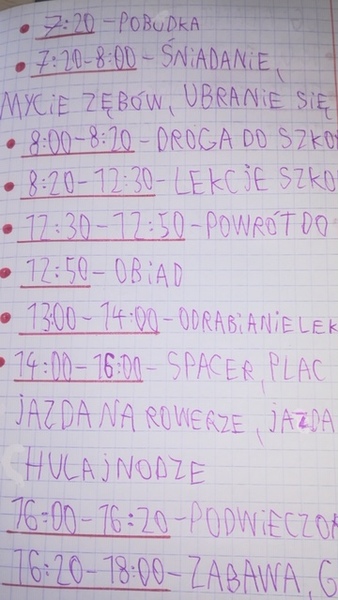 • 7:20 - POBUDKA
• 7:20-8:00 - ŚNIADANIE,
MYCIE ZĘBÓW, UBRANIE SIĘ
• 8:00-8:20 - DROGA DO SZKO
• 8:20-12:30 - LEKCJE SZKO
• 12:30-12:50 - POWRÓT DO
• 12:50 - OBIAD
• 13:00 - 14:00 - ODRABIANIE LEK
• 14:00 - 16:00 - SPACER, PLAC
JAZDA NA ROWERZE, JAZDA
HULAJNODZE
16:00 - 16:20 - PODWIECZO
16:20 - 18:00 - ZABAWA, G